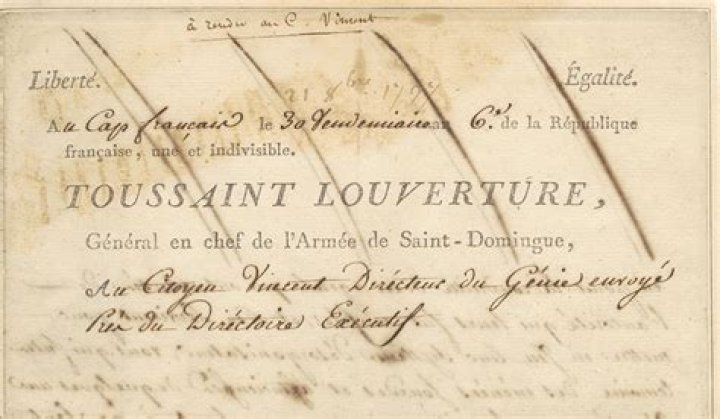 à rendre au C. Vincent
Liberté. Égalité.
21 8bre 1797
Au Cap français le 30 Vendemiaire an 6.e de la République
française, une et indivisible.
TOUSSAINT LOUVERTURE,
Général en chef de l'Armée de Saint-Domingue,
Au Citoyen Vincent Dirécteur du Génie envoyé
Près du Diréctoire Exécutif.